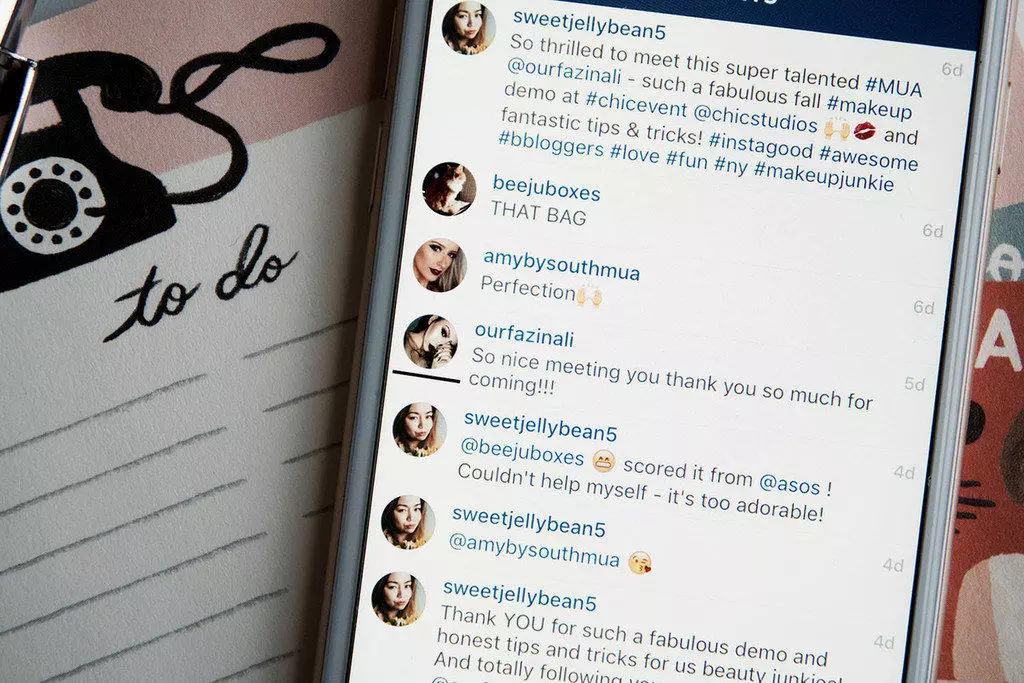 to do
sweetjellybean5
So thrilled to meet this super talented #MUA
@ourfazinali - such a fabulous fall #makeup
demo at #chicevent @chicstudios 🙌🏻💋 and
fantastic tips & tricks! #instagood #awesome
#bbloggers #love #fun #ny #makeupjunkie
6d
beejuboxes
THAT BAG
6d
amybysouthmua
Perfection🙌🏻
6d
ourfazinali
So nice meeting you thank you so much for
coming!!!
5d
sweetjellybean5
@beejuboxes 😁 scored it from @asos !
Couldn't help myself - it's too adorable!
4d
sweetjellybean5
@amybysouthmua 😘
4d
sweetjellybean5
Thank YOU for such a fabulous demo and
honest tips and tricks for us beauty junkies!
And totally following
4d
e
A